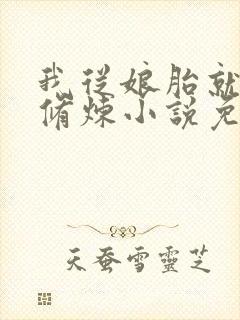 我從娘胎就
脩煉小說免
天蚕雪靈芝